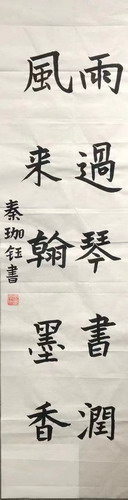 雨過琴書潤
風来翰墨香
秦珈鈺書